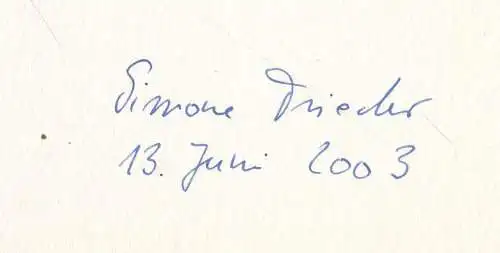 Simone Trieder
13. Juni 2003